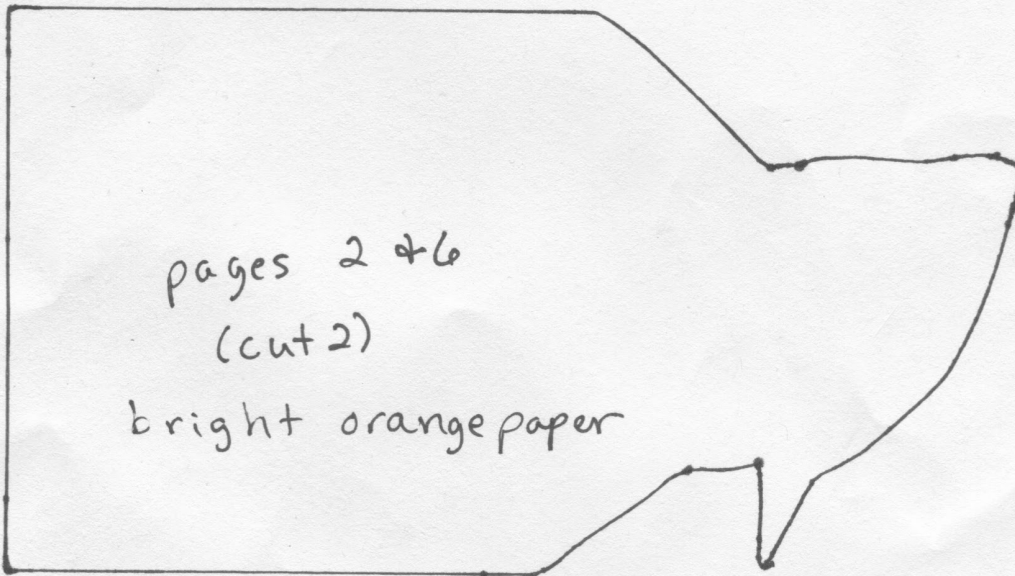 pages 2 & 6
(cut 2)
bright orange paper